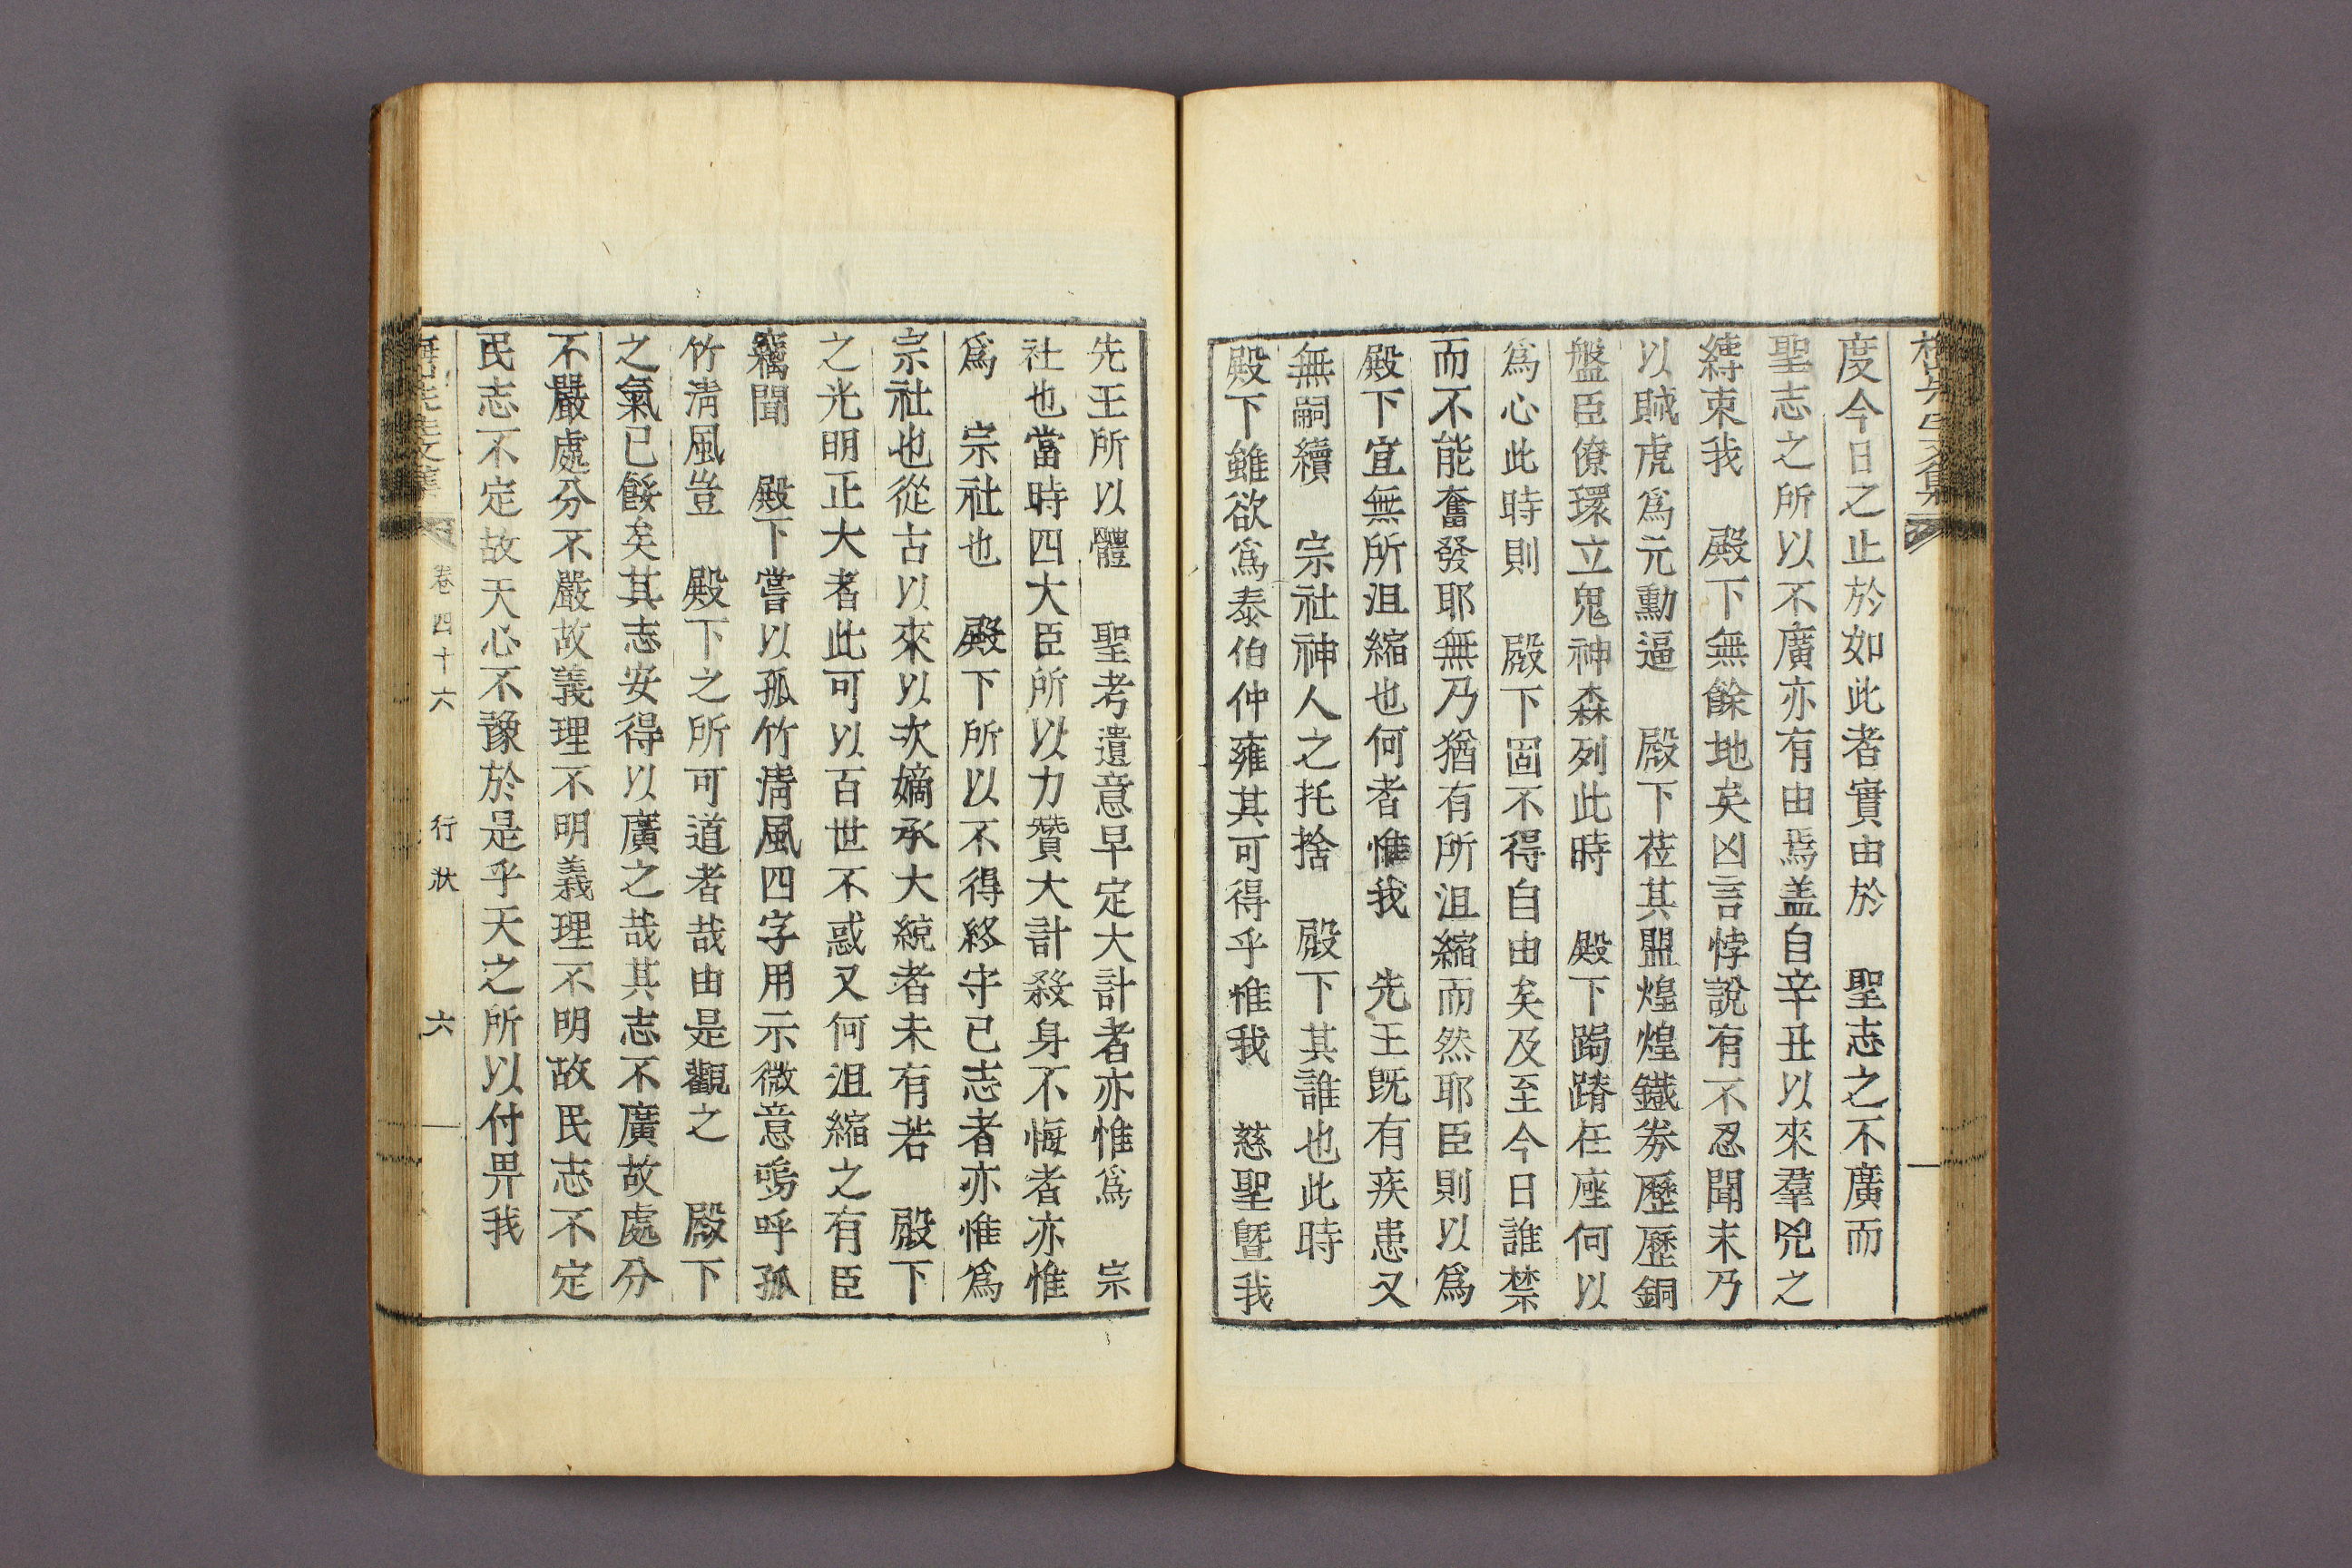 度今日之止於如此者實由於　聖志之不廣而
聖志之所以不廣亦有由焉盖自辛丑以來羣兇之
縳束我　殿下無餘地矣凶言悖說有不忍聞末乃
以賊虎爲元勳逼　殿下莅其盟煌煌鐵劵歷歷銅
盤臣僚環立鬼神森列此時　殿下跼蹐在座何以
爲心此時則　殿下固不得自由矣及至今日誰禁
而不能奮發耶無乃猶有所沮縮而然耶臣則以爲
殿下宜無所沮縮也何者惟我　先王旣有疾患又
無嗣續　宗社神人之托捨　殿下其誰也此時
殿下雖欲爲泰伯仲雍其可得乎惟我　慈聖曁我
先王所以體　聖考遺意早定大計者亦惟爲　宗
社也當時四大臣所以力贊大計殺身不悔者亦惟
爲　宗社也　殿下所以不得終守己志者亦惟爲
宗社也從古以來以次嫡承大統者未有若　殿下
之光明正大者此可以百世不惑又何沮縮之有臣
竊聞　殿下嘗以孤竹淸風四字用示微意嗚呼孤
竹淸風豈　殿下之所可道者哉由是觀之　殿下
之氣已餒矣其志安得以廣之哉其志不廣故處分
不嚴處分不嚴故義理不明義理不明故民志不定
民志不定故天心不豫於是乎天之所以付畀我
卷四十六　行狀　六